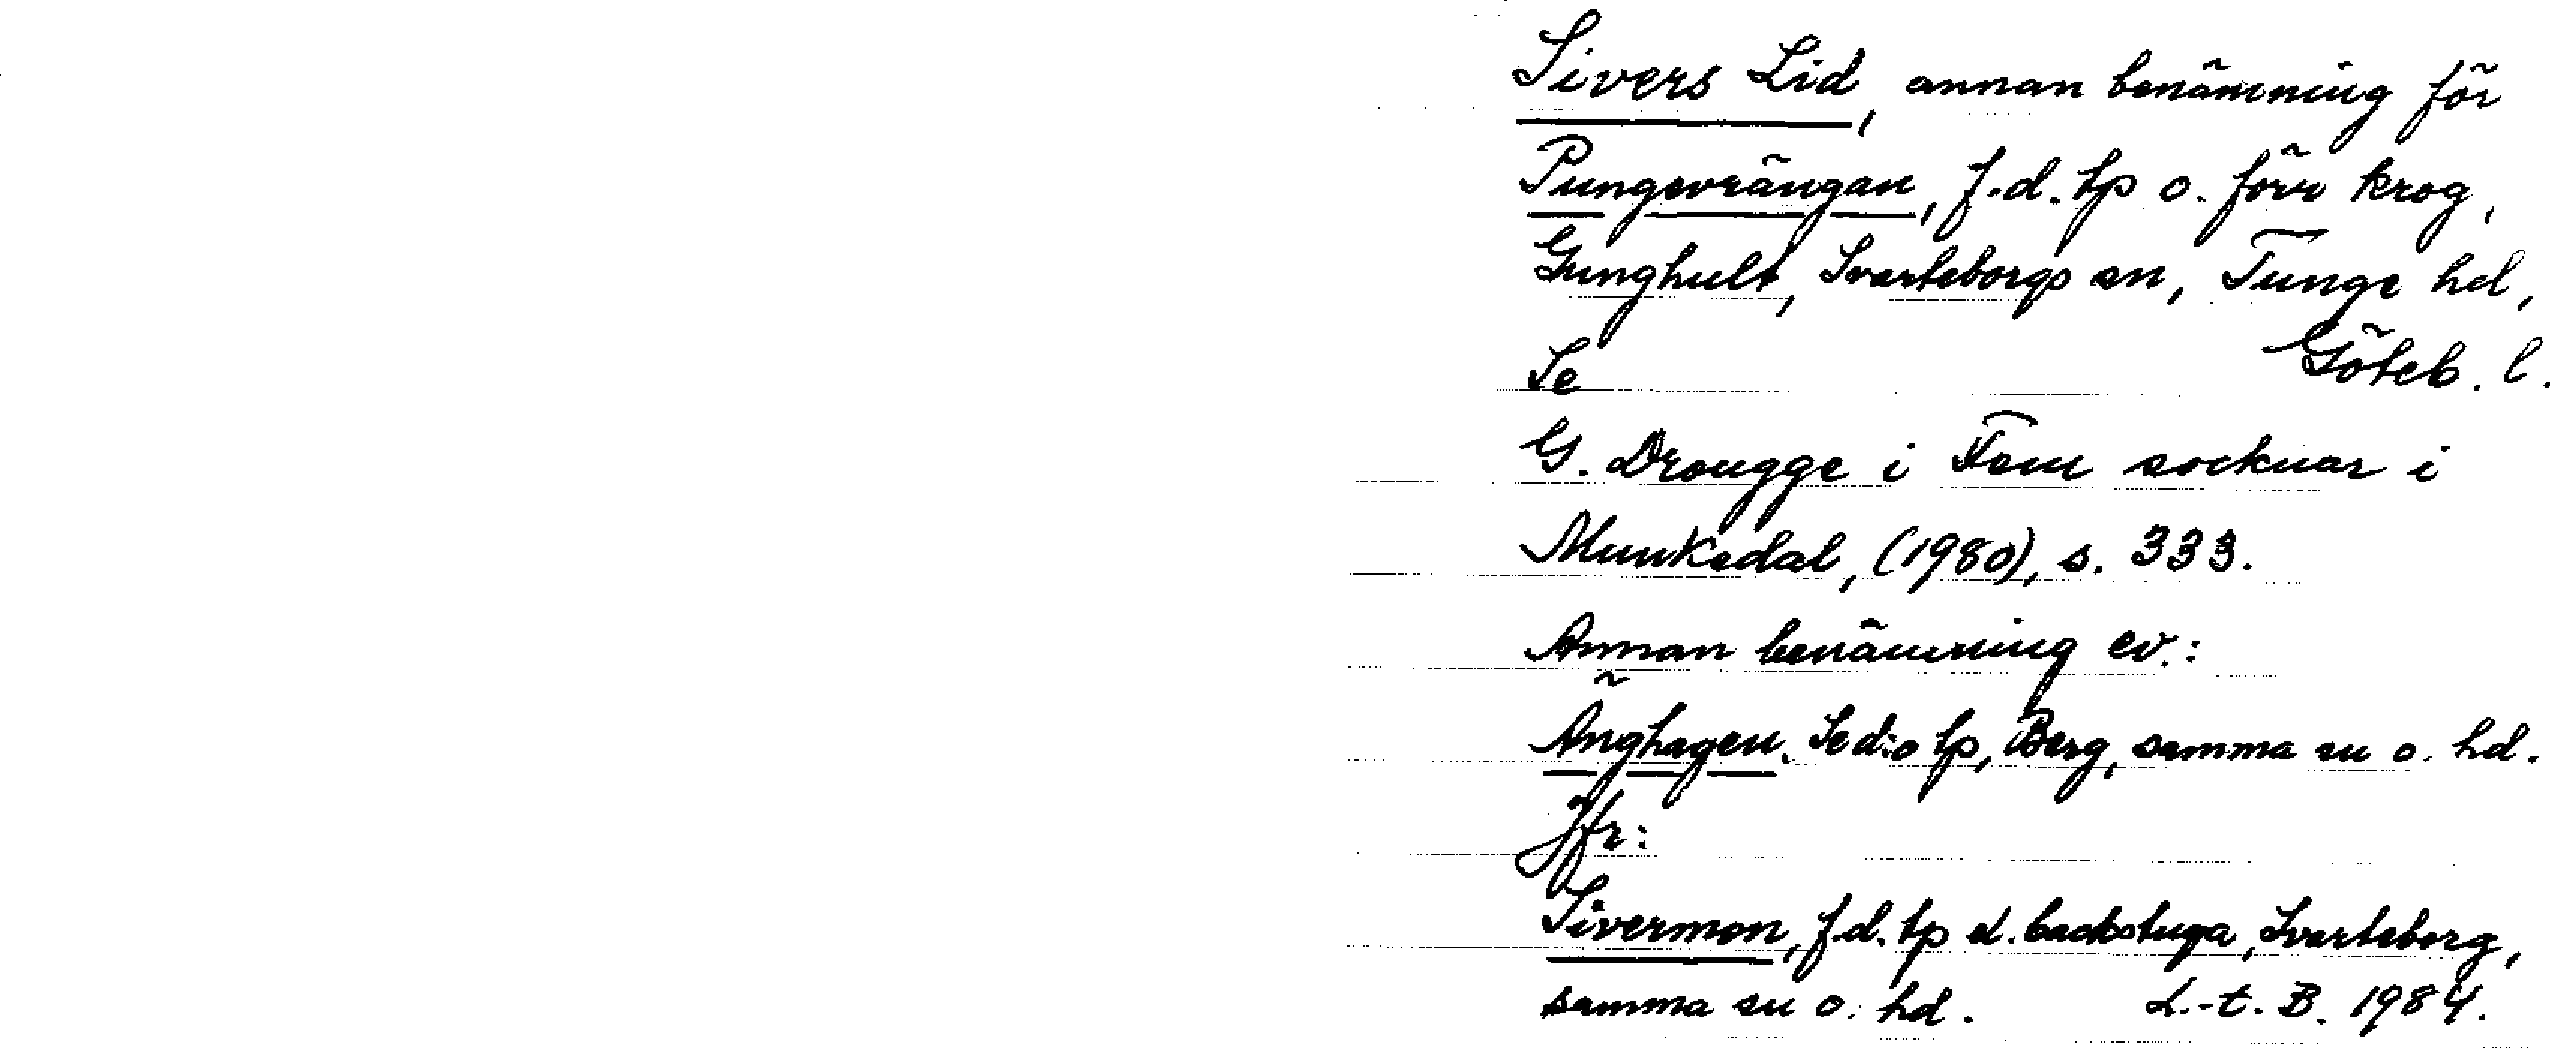 Sivers Lid, annan benämning för
Pungevrängan, f.d. tp o. förr krog,
Gunghult, Svarteborgs sn, Tunge hd,
Se Göteb. l.
G. Drougge i Fem socknar i
Munkedal, (1980), s. 333.
Annan benämning ev.:
Änghagen. Se d:o tp, Berg, samma sn o. hd.
Jfr:
Sivermon, f.d. tp el. backstuga, Svarteborg,
samma sn o. hd. L.-t. B. 1984.